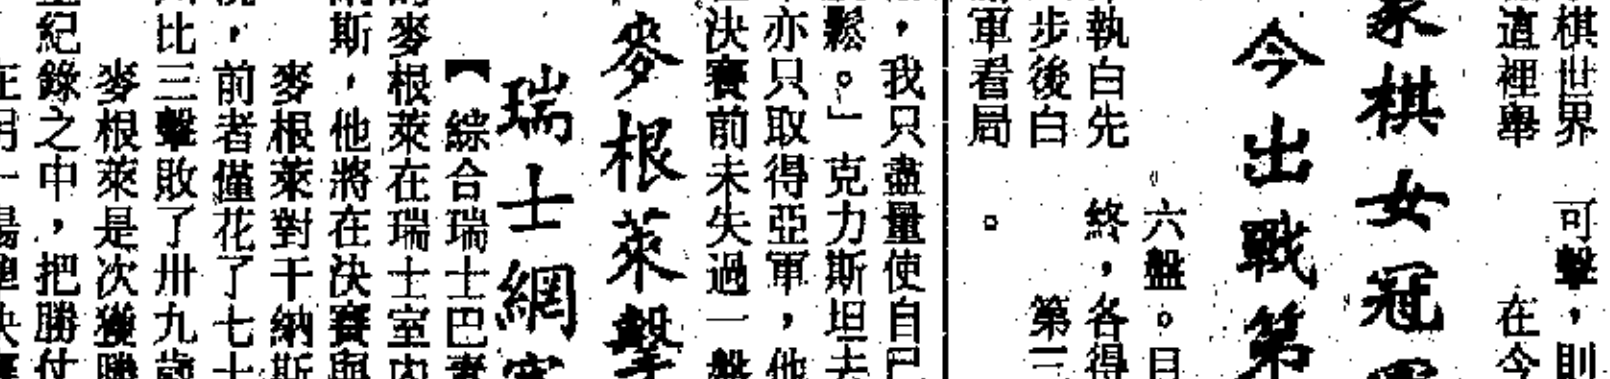 棋世界　可擊，則
這裡舉　　在今
家棋女冠軍
今出戰第
六盤。目
執白先　終，各得
步後白　　第三
軍看局　。
，我只盡量使自己
鬆。」克力斯坦去
亦只取得亞軍，他
決賽前未失過一盤
麥根萊擊
瑞士網賽
【綜合瑞士巴塞
麥根萊在瑞士室內
斯，他將在決賽與
麥根萊對干納斯
，前者僅花了七十
比三擊敗了卅九歲
麥根萊是次獲勝
紀錄之中，把勝仗